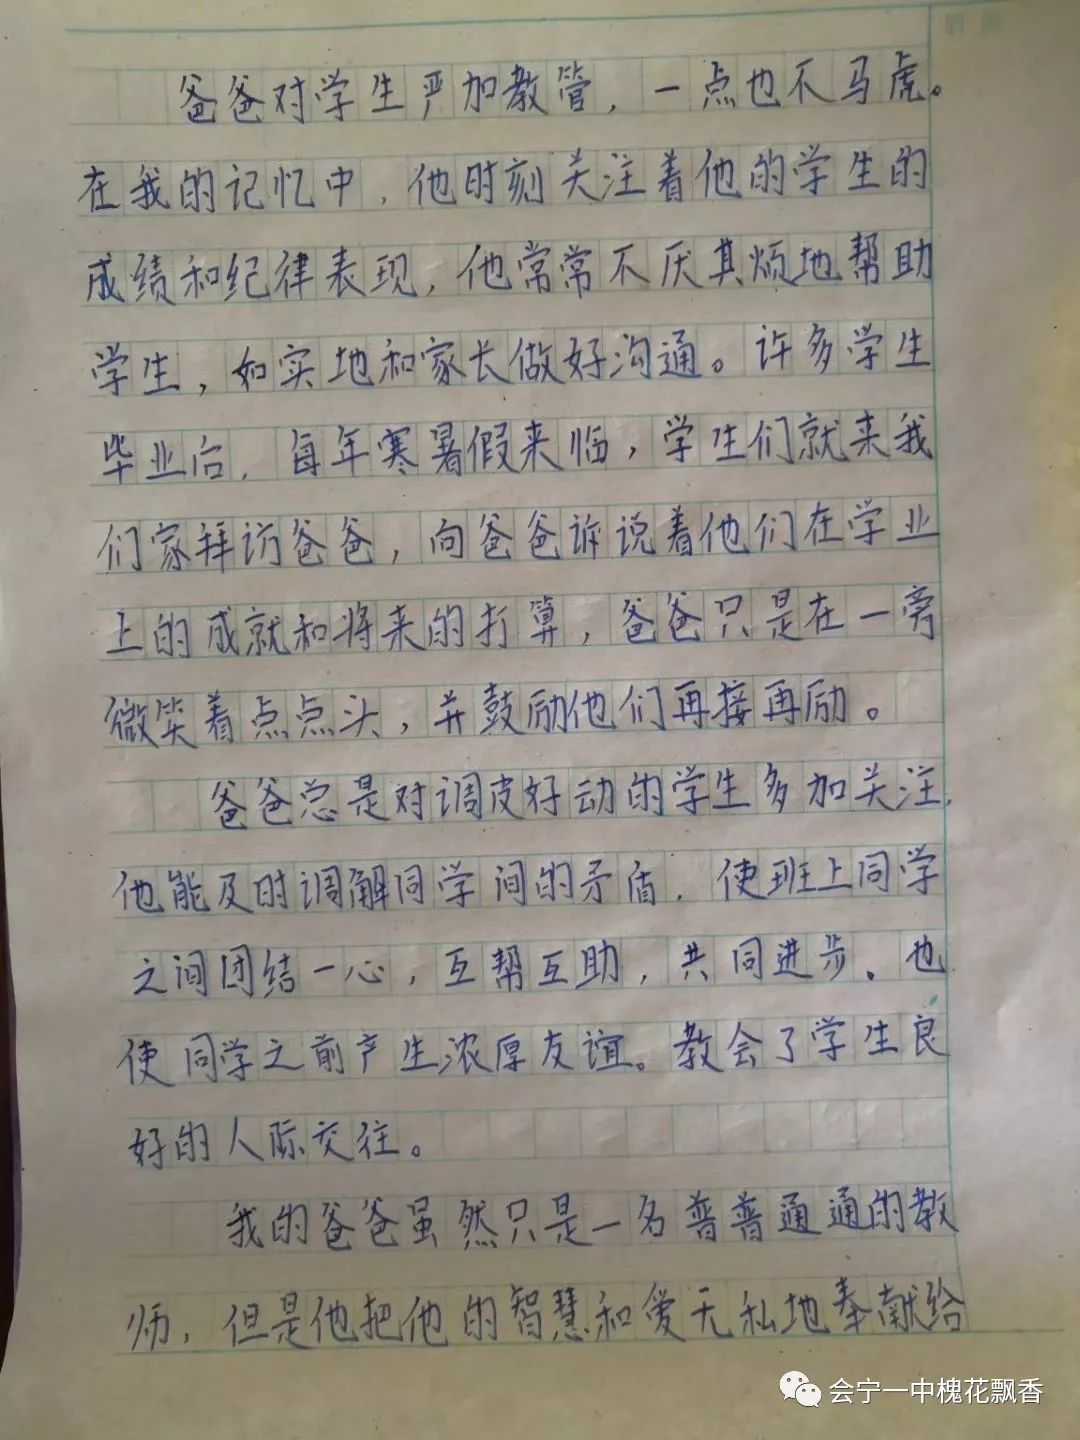 爸爸对学生严加教管，一点也不马虎。
在我的记忆中，他时刻关注着他的学生的
成绩和纪律表现，他常常不厌其烦地帮助
学生，如实地和家长做好沟通。许多学生
毕业后，每年寒暑假来临，学生们就来我
们家拜访爸爸，向爸爸诉说着他们在学业
上的成就和将来的打算，爸爸只是在一旁
微笑着点点头，并鼓励他们再接再励。
爸爸总是对调皮好动的学生多加关注，
他能及时调解同学间的矛盾，使班上同学
之间团结一心，互帮互助，共同进步。也
使同学之前产生浓厚友谊。教会了学生良
好的人际交往。
我的爸爸虽然只是一名普普通通的教
师，但是他把他的智慧和爱无私地奉献给
会宁一中槐花飘香